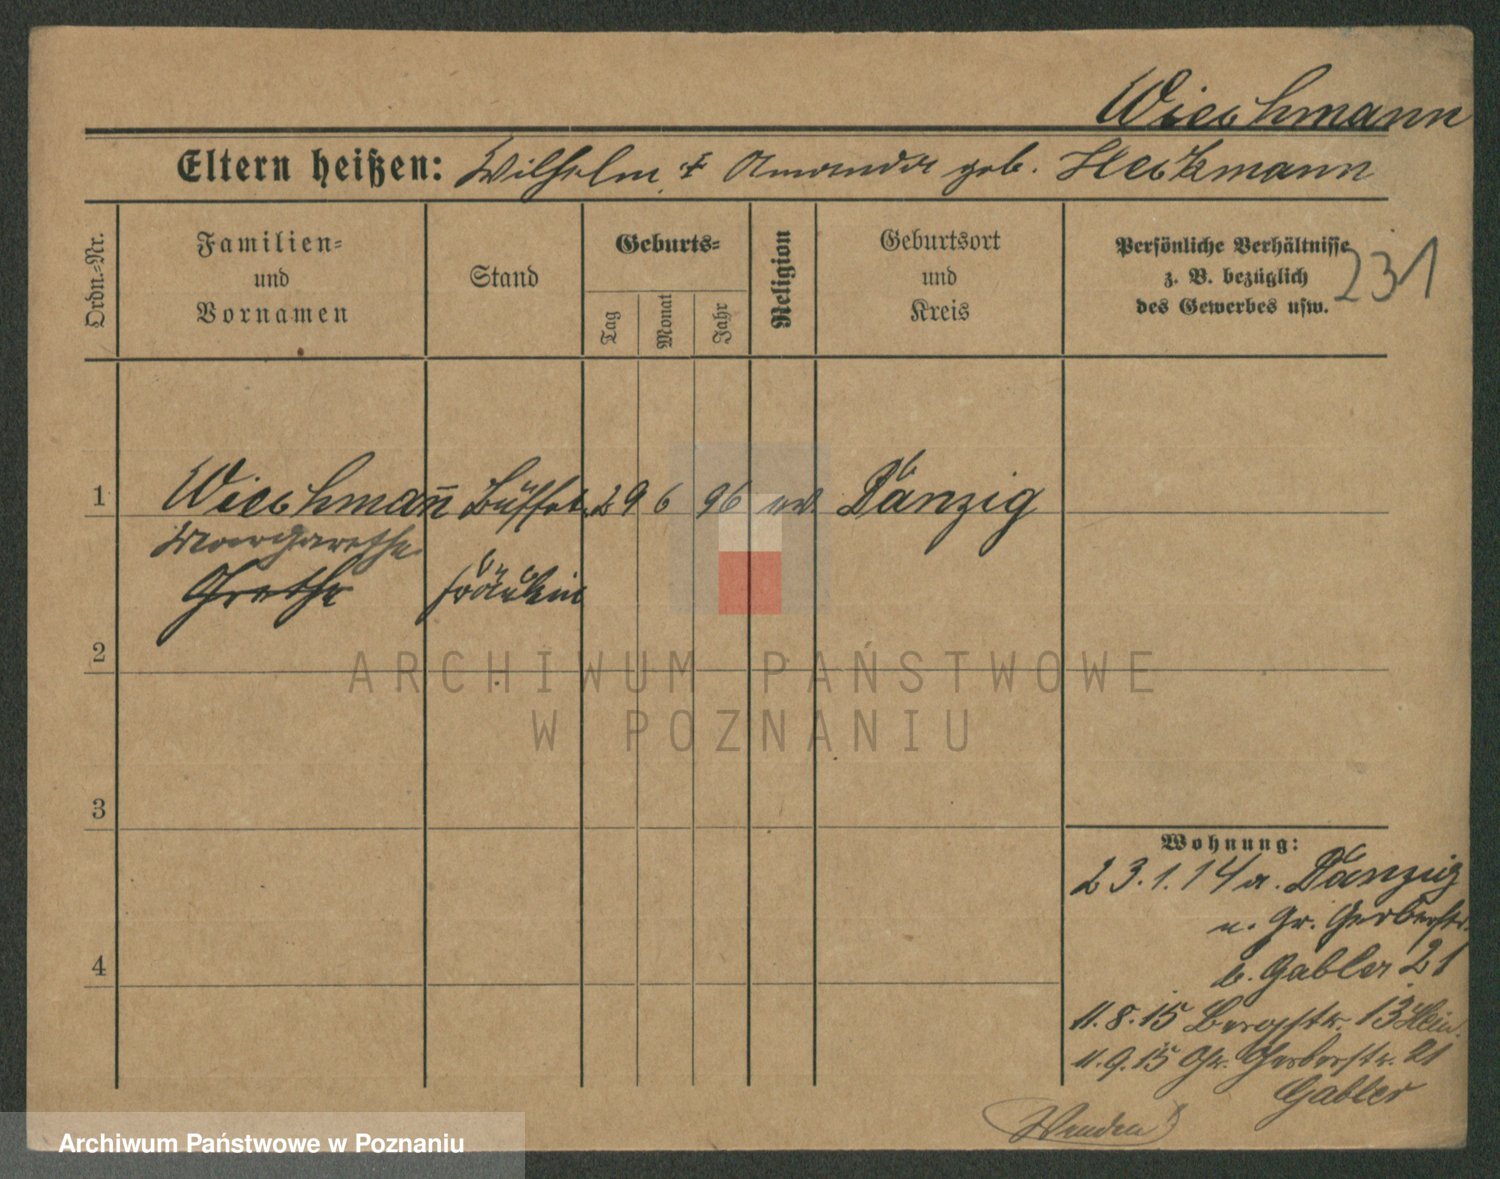 Wiechmann
Eltern heißen: Wilhelm u. Amanda geb. Heckmann
Ordn.-Nr.
Familien-
und
Vornamen
Stand
Geburts-
Tag
Monat
Jahr
Religion
Geburtsort
und
Kreis
Persönliche Verhältnisse
z. B. bezüglich
des Gewerbes usw.
231
1
Wiechman̄ Büffet- 29 6 96 ev. Danzig
Margarethe
Grethe fräulein
2
ARCHIWUM PAŃSTWOWE
W POZNANIU
3
4
Wohnung:
23.1.14 a. Danzig
n. Gr. Gerberstr.
b. Gabler 21
11.8.15 Bergstr. 13
11.9.15 Gr. Gerberstr. 21
Gabler
Wenden
Archiwum Państwowe w Poznaniu